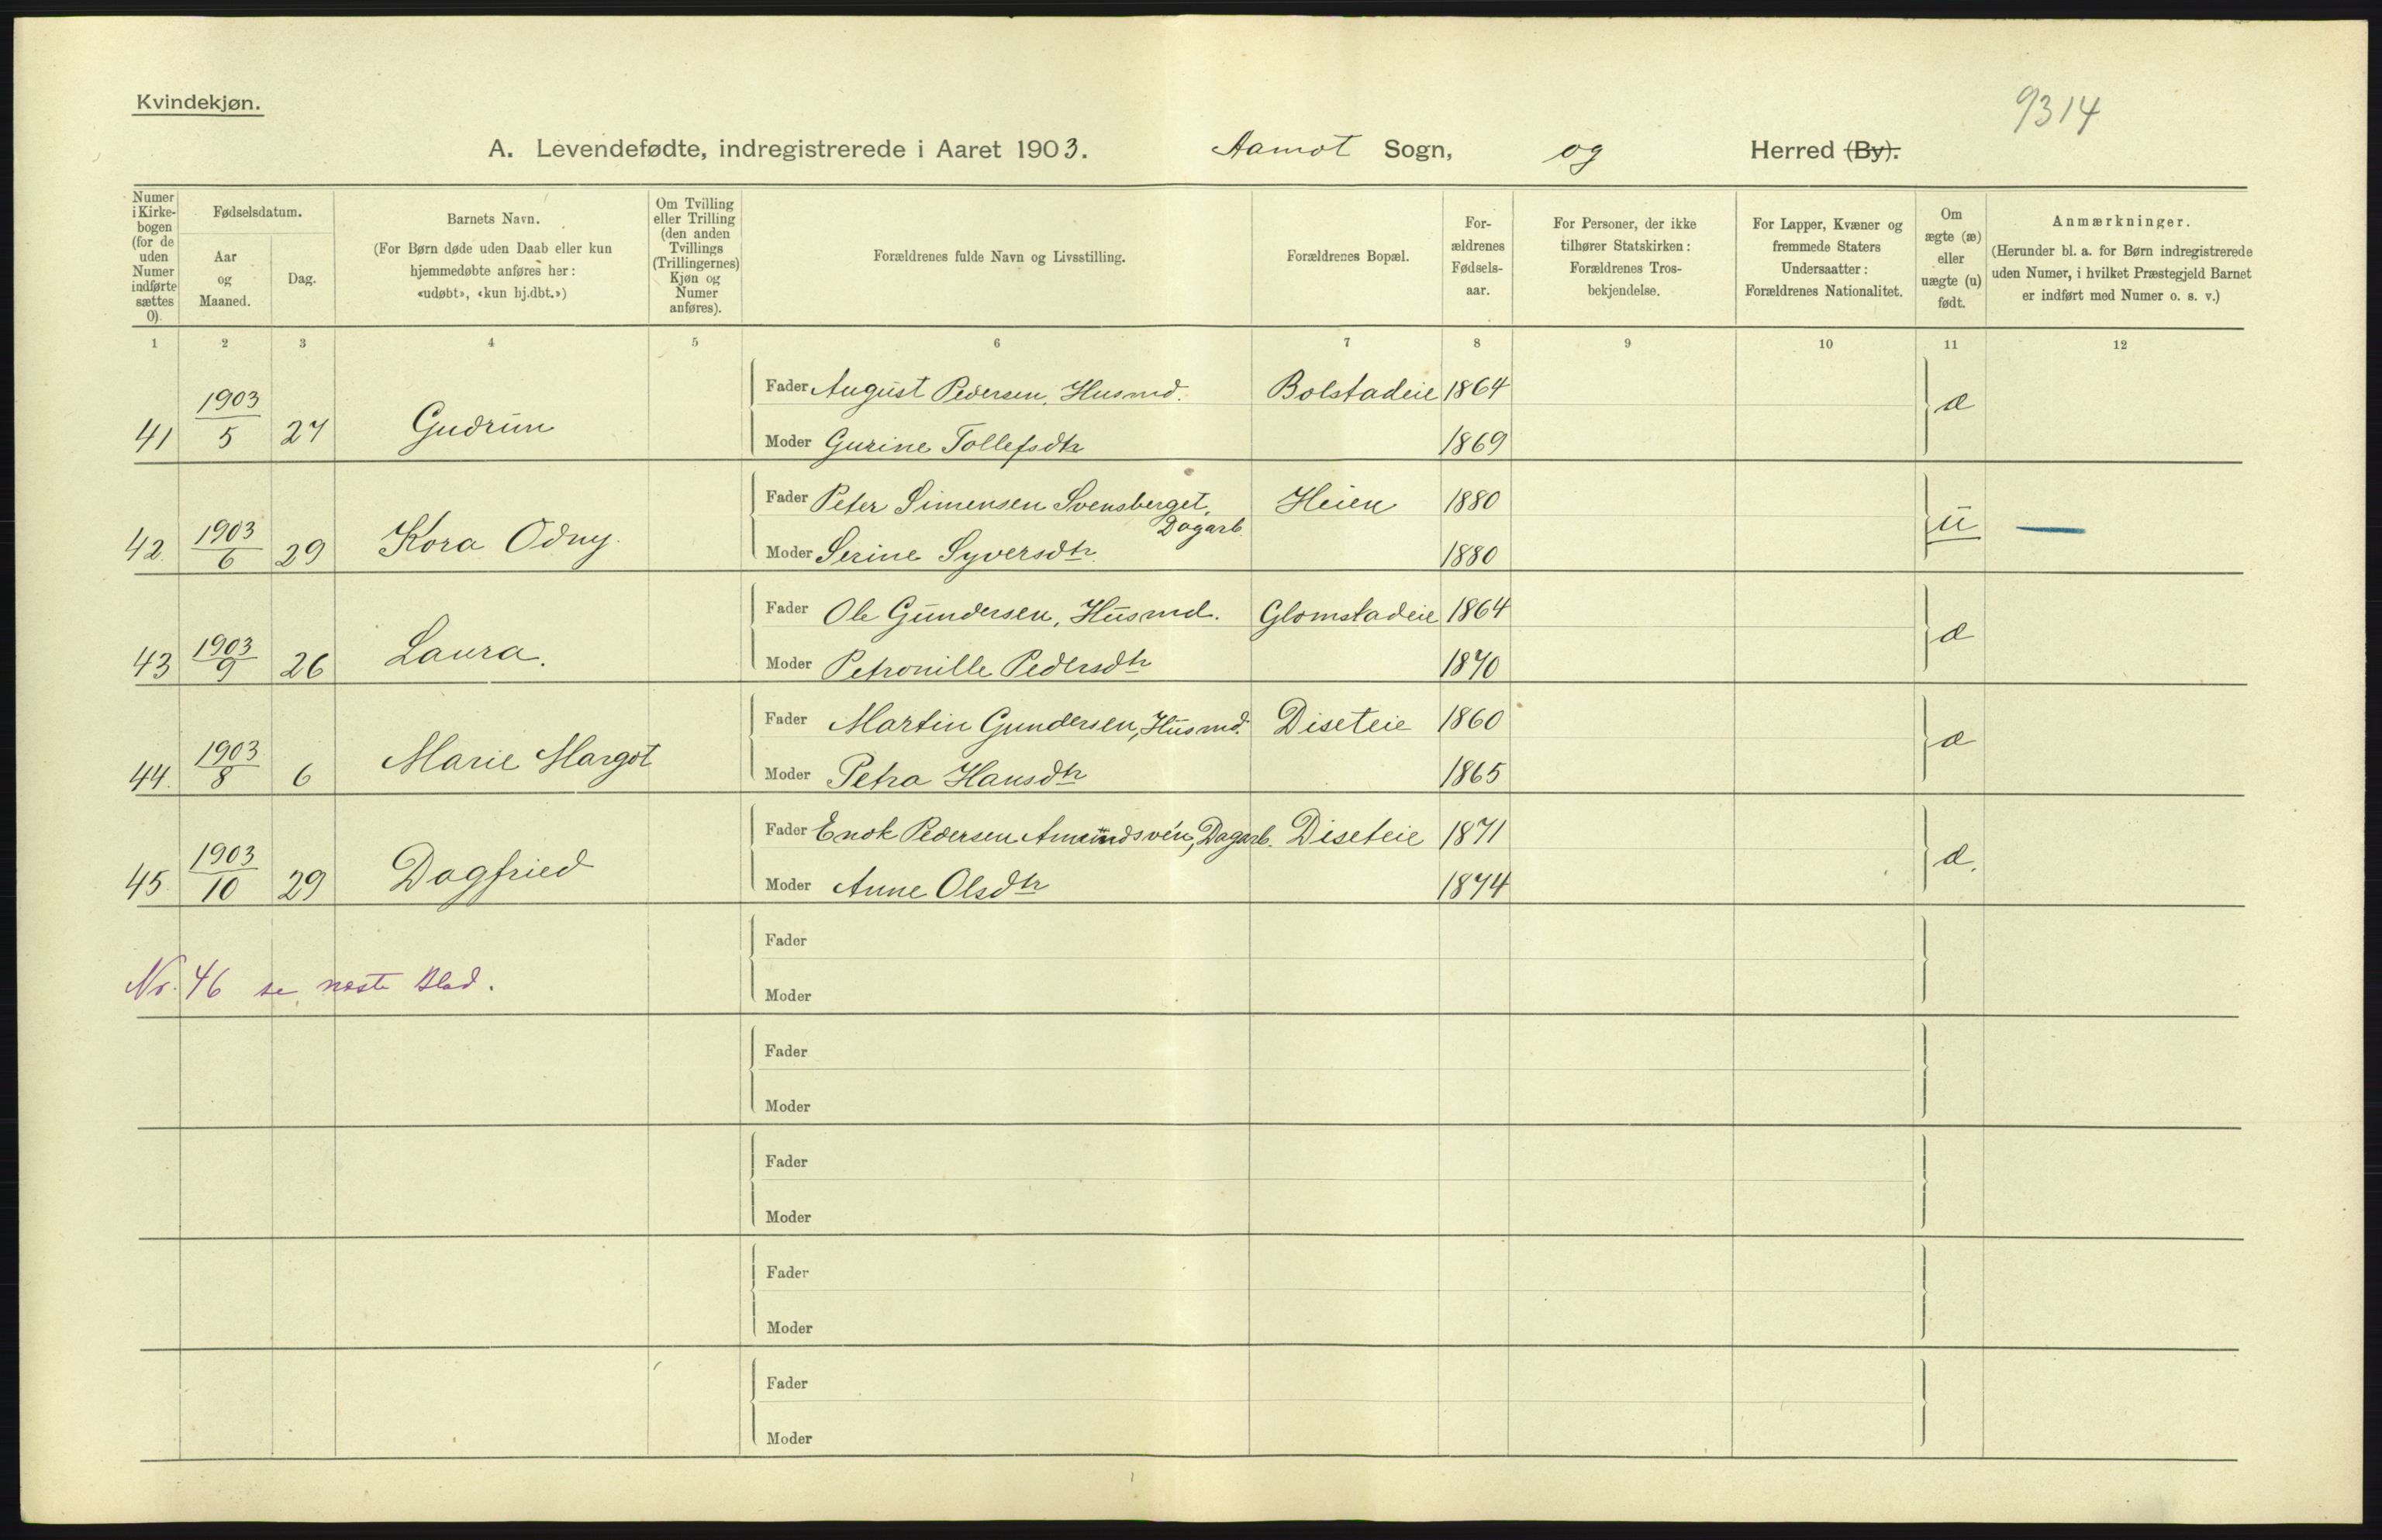 Kvindekjøn.
9314
A. Levendefødte, indregistrerede i Aaret 1903. Aamot Sogn, og Herred (By).
Numer i Kirke-bogen (for de uden Numer indførte sættes 0).
Fødselsdatum.
Aar og Maaned.
Dag.
Barnets Navn.
(For Børn døde uden Daab eller kun hjemmedøbte anføres her: «udøbt», «kun hj.dbt.»)
Om Tvilling eller Trilling (den anden Tvillings (Trillingernes) Kjøn og Numer anføres).
Forældrenes fulde Navn og Livsstilling.
Forældrenes Bopæl.
For-ældrenes Fødsels-aar.
For Personer, der ikke tilhører Statskirken: Forældrenes Tros-bekjendelse.
For Lapper, Kvæner og fremmede Staters Undersaatter: Forældrenes Nationalitet.
Om ægte (æ) eller uægte (u) født.
Anmærkninger.
(Herunder bl. a. for Børn indregistrerede uden Numer, i hvilket Præstegjeld Barnet er indført med Numer o. s. v.)
1 2 3 4 5 6 7 8 9 10 11 12
Fader August Pedersen, Husmd. Bolstadeie 1864
41 1903/5 27 Gudrun æ
Moder Gurine Tollefsdtr 1869
Fader Peter Simensen Svensberget, Dagarb. Heien 1880
42. 1903/6 29 Kora Odny. u
Moder Serine Syversdtr. 1880
Fader Ole Gundersen, Husmd. Glomstadeie 1864
43 1903/9 26 Laura. æ
Moder Petronille Pedersdtr 1870
Fader Martin Gundersen, Husmd. Diseteie 1860
44. 1903/8 6 Marie Margot æ
Moder Petra Hansdtr 1865
Fader Enok Pedersen Amundsven, Dagarb. Diseteie 1871
45 1903/10 29 Dagfried æ.
Moder Anne Olsdtr 1874
Fader
Nr. 46 se næste Blad.
Moder
Fader
Moder
Fader
Moder
Fader
Moder
Fader
Moder